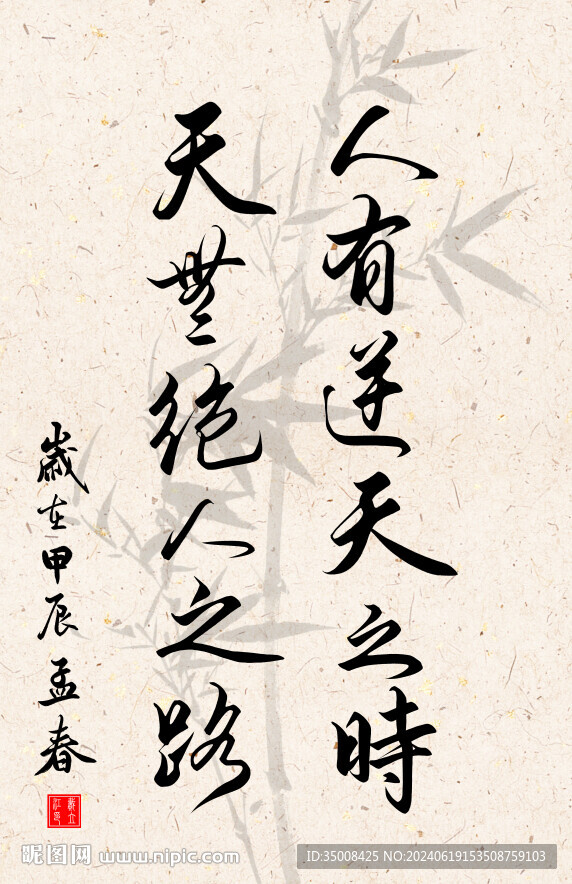 人有逆天之時
天無絶人之路
歳在甲辰孟春
昵图网 www.nipic.com
ID:35008425 NO:20240619153508759103